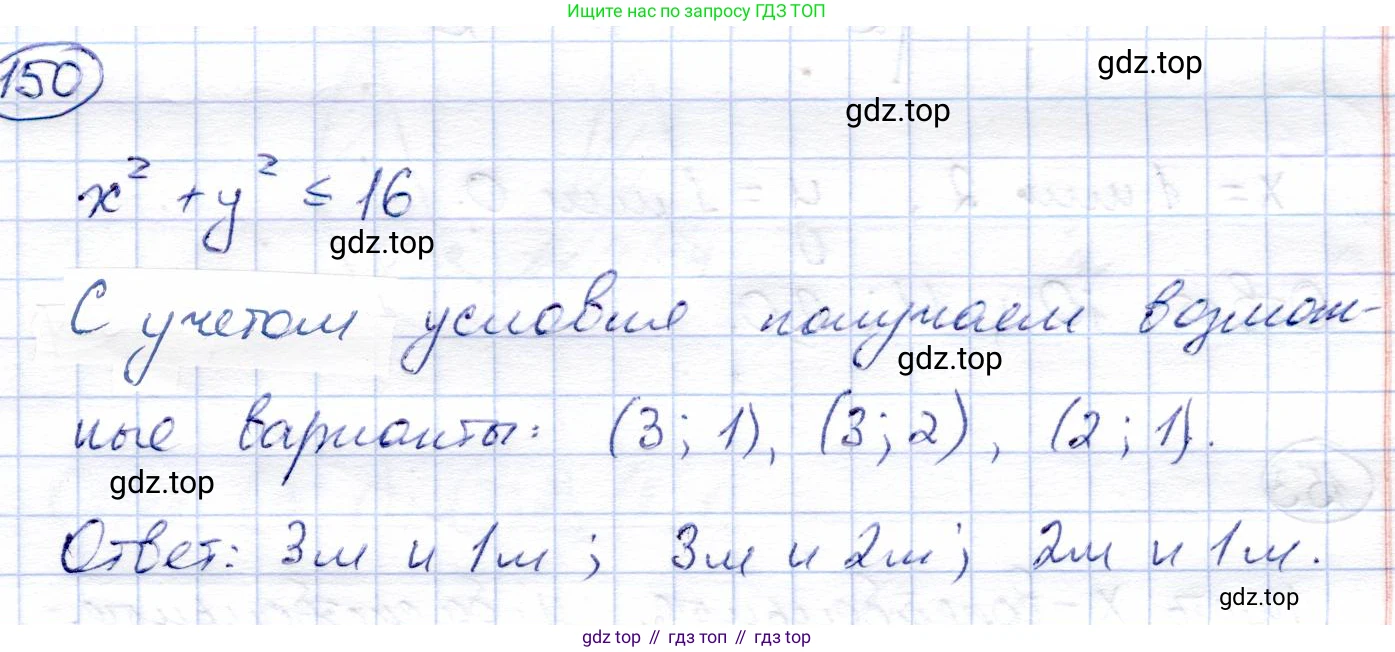 Ищите нас по запросу ГДЗ ТОП
150
gdz.top
gdz.top
x² + y² ≤ 16
gdz.top
С учетом условия получаем возмож-
gdz.top
ные варианты: (3; 1), (3; 2), (2; 1).
gdz.top
Ответ: 3м и 1м; 3м и 2м; 2м и 1м.
gdz.top
gdz top // гдз топ // гдз top